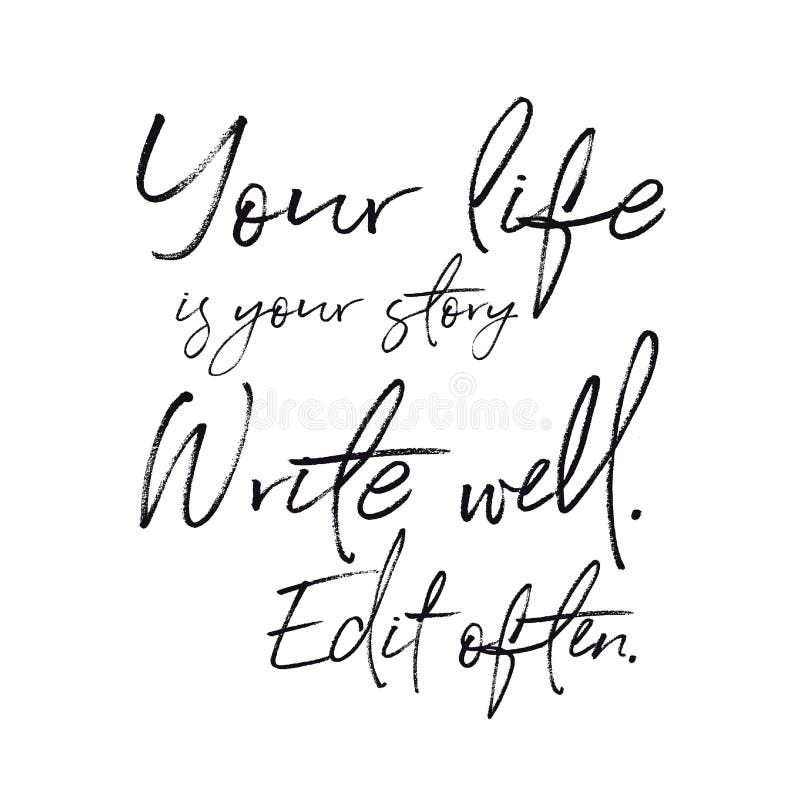 Your life
is your story
dreamstime.
Write well.
Edit often.